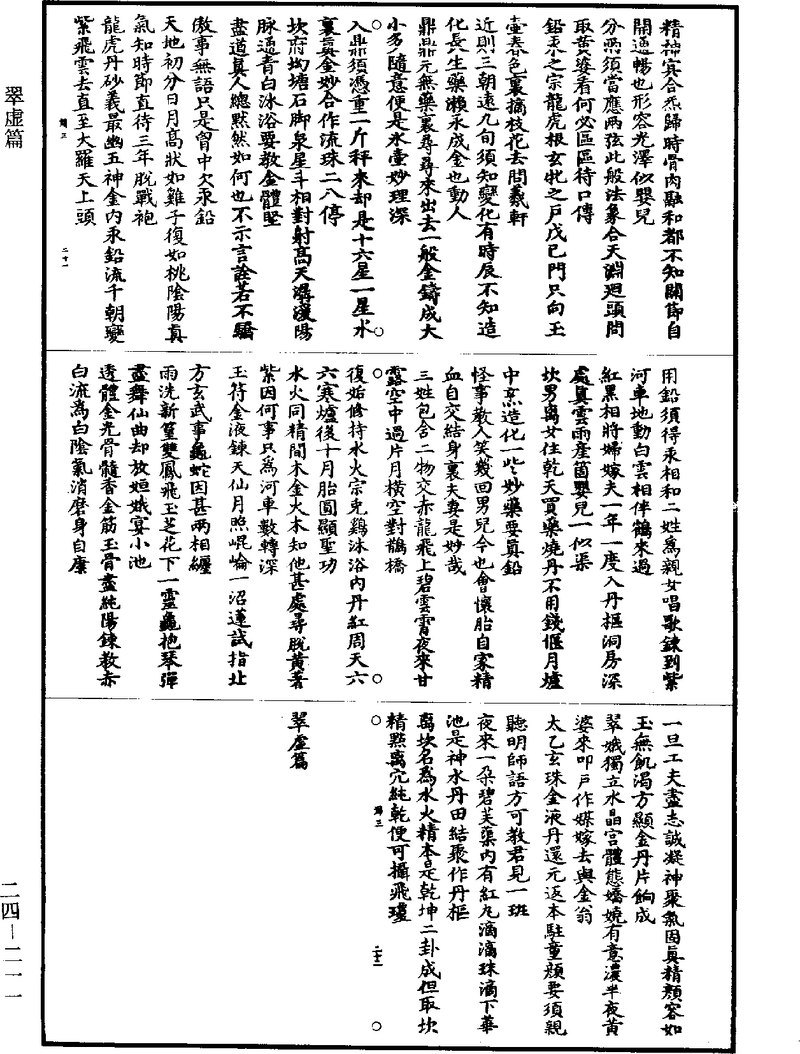 翠虛篇
精神㝠合炁歸時骨肉融和都不知關節自
開通暢也形容光澤似嬰兒
分㸃須當應兩弦此般法象合天淵迴頭問
取黄婆看何必區區待口傳
鉛汞之宗龍虎根玄牝之戶戊已門只向玉
壺春色裏摘枝花去問羲軒
近則三朝遠九旬須知變化有時辰不知造
化長生藥瀨永成金也動人
鼎鼎元無藥裏尋尋來出去一般金鑄成大
小多隨意便是氷壷妙理深
入鼎須憑重二斤秤來却是十六星一星水
裏真金妙合作流珠二八停
坎府坳塘石脚泉星斗相對射髙天潺湲陽
脉通青白泳浴要教金體堅
盡道真人總黙然如何也不示言詮若不驕
傲事無語只是胷中欠汞鉛
天地初分日月高狀如雞子復如桃陰陽真
氣知時節直待三年脫戰袍
龍虎丹砂義最幽五神金内汞鉛流千朝變
紫飛雲去直至大羅天上頭
二十一
用鉛須得汞相和二姓為親女唱歌錬到紫
河車地動白雲相伴鶴來過
紅黒相將婦嫁夫一年一度入丹樞洞房深
處真雲雨產箇嬰兒一似渠
坎男离女住乾天買藥燒丹不用錢偃月爐
中烹造化一些妙藥要真鉛
怪事教人笑㡬回男兒今也會懷胎自家精
血自交結身裏夫妻是妙哉
三姓包含二物交赤龍飛上碧雲霄夜來甘
露空中過片月橫空對鵲橋
復姤修持水火宗兎鷄沐浴内丹紅周天六
六寒爐後十月胎圓顯聖功
水火同精間木金火本知他甚處尋脫黄著
紫因何事只為河車數轉深
玉符金液錬天仙月照崐崘一沼蓮試指北
方玄武事龜蛇因甚兩相纏
雨洗新篁雙鳳飛玉芝花下一靈龜抱琴彈
盡舞仙曲却放姮娥宴小池
透體金光骨髓香金筋玉骨盡純陽錬教赤
白流為白陰氣消磨身自康
一旦工夫盡志誠凝神聚氣固真精顏容如
玉無飢渴方顯金丹片餉成
翠娥獨立水晶宫體態嬌嬈有意濃半夜黄
婆來叩戶作媒嫁去與金翁
太乙玄珠金液丹還元返本駐童顏要須親
聽明師語方可教君見一斑
夜來一朶碧芙蕖内有紅丸滴滴珠滴下華
池是神水丹田結聚作丹樞
离坎名為水火精本是乾坤二卦成但取坎
精㸃离穴純乾便可攝飛瓊
二十二
翠虛篇
二四—二一一